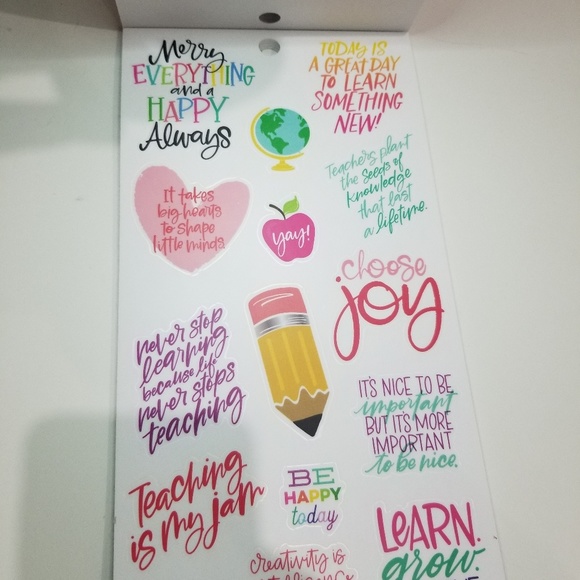 Merry
EVERYTHING
and a
HAPPY
Always
TODAY IS
A GREAT DAY
TO LEARN
SOMETHING
NEW!
Teachers plant
the seeds of
knowledge
that last
a lifetime.
It takes
big hearts
to shape
little minds
yay!
choose
joy
never stop
learning
because life
never stops
teaching
IT'S NICE TO BE
important
BUT IT'S MORE
IMPORTANT
to be nice.
Teaching
is my jam
BE
HAPPY
today
LEARN.
grow.
creativity is